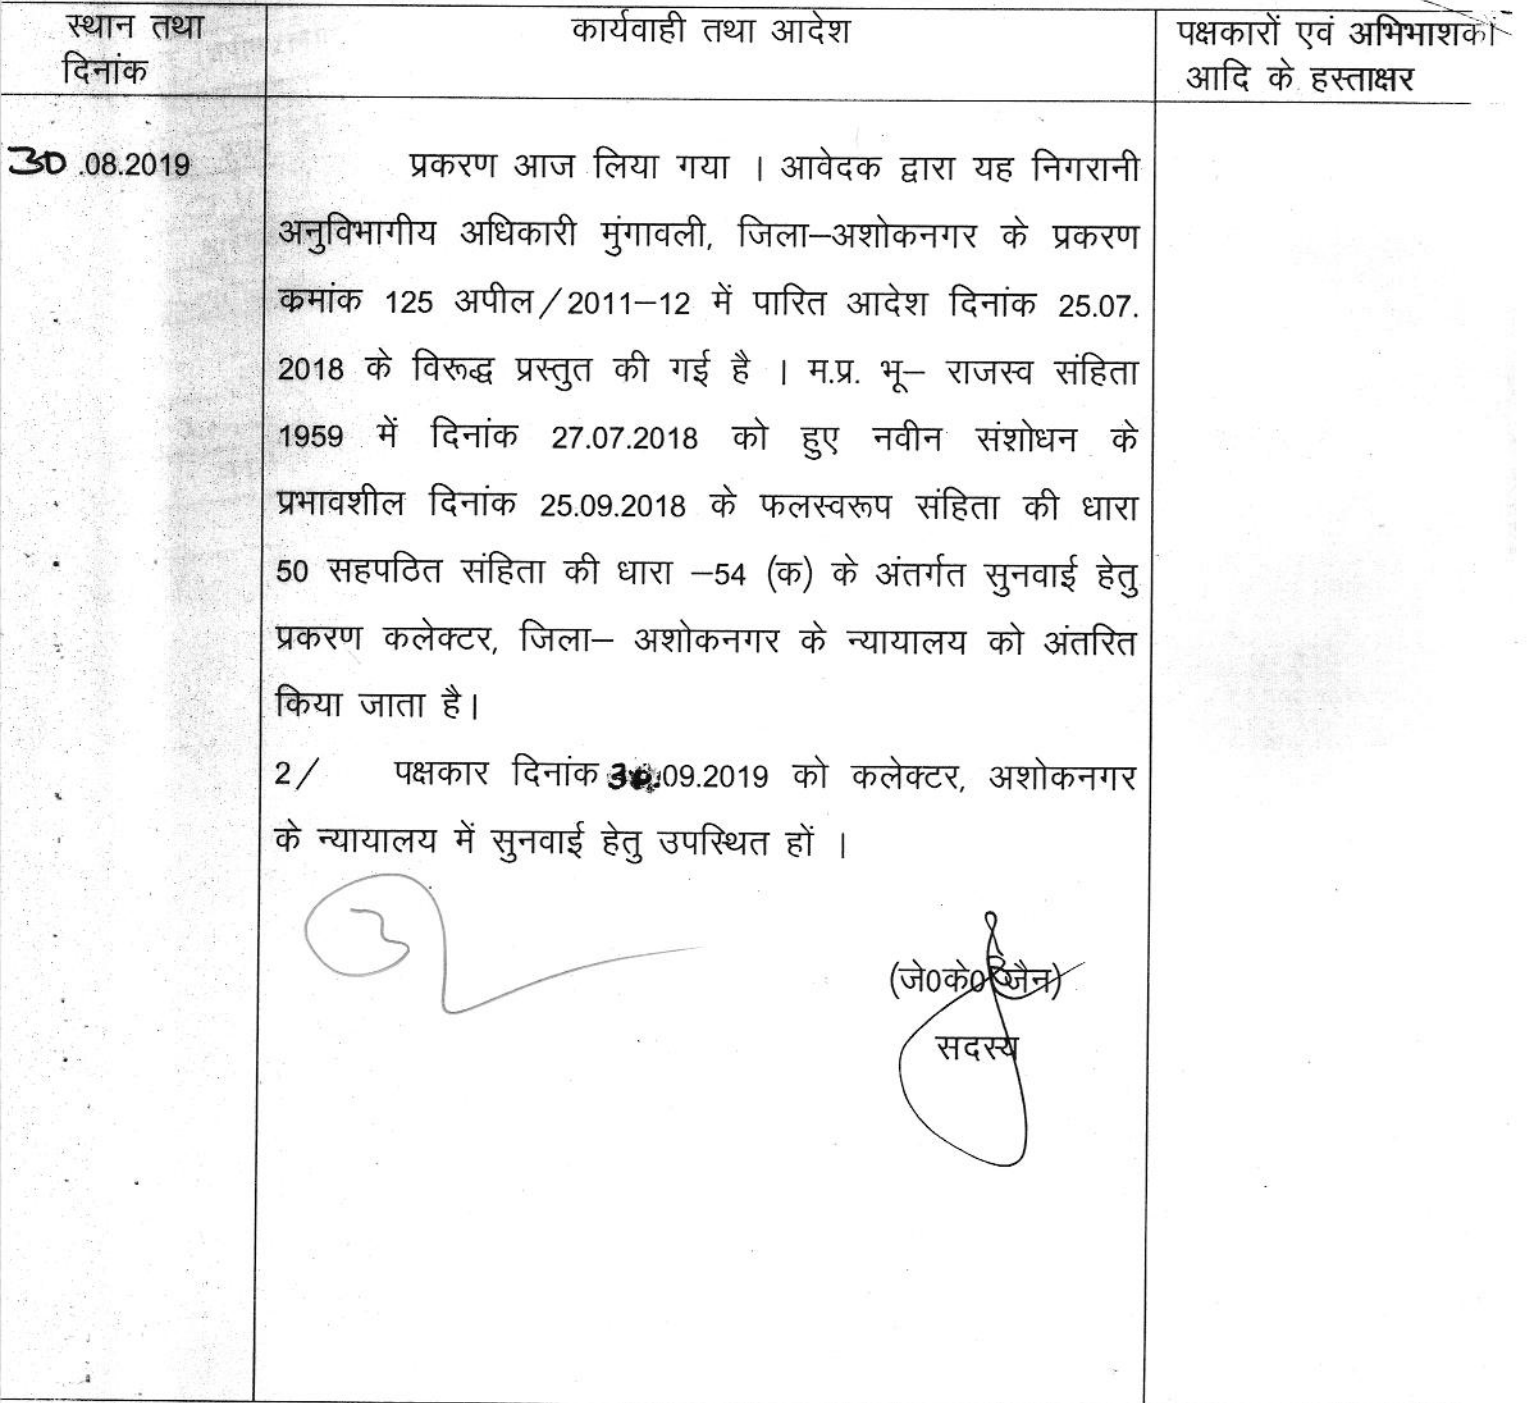 स्थान तथा
दिनांक
कार्यवाही तथा आदेश
पक्षकारों एवं अभिभाशकों
आदि के हस्ताक्षर
30 .08.2019
प्रकरण आज लिया गया । आवेदक द्वारा यह निगरानी
अनुविभागीय अधिकारी मुंगावली, जिला–अशोकनगर के प्रकरण
कमांक 125 अपील/2011–12 में पारित आदेश दिनांक 25.07.
2018 के विरूद्ध प्रस्तुत की गई है । म.प्र. भू– राजस्व संहिता
1959 में दिनांक 27.07.2018 को हुए नवीन संशोधन के
प्रभावशील दिनांक 25.09.2018 के फलस्वरूप संहिता की धारा
50 सहपठित संहिता की धारा –54 (क) के अंतर्गत सुनवाई हेतु
प्रकरण कलेक्टर, जिला– अशोकनगर के न्यायालय को अंतरित
किया जाता है।
2/ पक्षकार दिनांक 30.09.2019 को कलेक्टर, अशोकनगर
के न्यायालय में सुनवाई हेतु उपस्थित हों ।
(जे0के0 जैन)
सदस्य